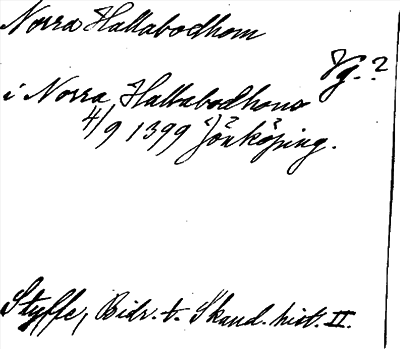 Norra Hallabodhom
Vg.?
i Norra Hallabodhom
4/9 1399 Jönköping.
Styffe, Bidr. t. Skand. hist. II.